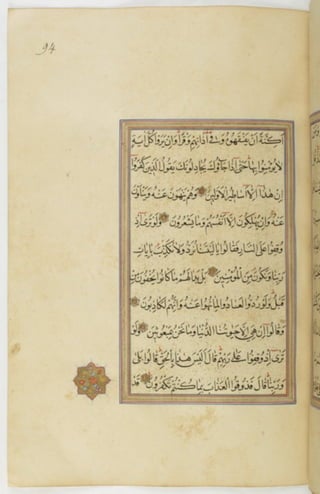 94
اَكِنَّةً اَنْ يَفْقَهُوهُ وَفٖى اٰذَانِهِمْ وَقْرًا وَاِنْ يَرَوْا كُلَّ اٰيَةٍ
لَا يُؤْمِنُوا بِهَا حَتّٰى اِذَا جَاؤُكَ يُجَادِلُونَكَ يَقُولُ الَّذٖينَ كَفَرُوا
اِنْ هٰذَا اِلَّا اَسَاطٖيرُ الْاَوَّلٖينَ وَهُمْ يَنْهَوْنَ عَنْهُ وَيَنْاَوْنَ
عَنْهُ وَاِنْ يُهْلِكُونَ اِلَّا اَنْفُسَهُمْ وَمَا يَشْعُرُونَ وَلَوْ تَرٰى اِذْ
وُقِفُوا عَلَى النَّارِ فَقَالُوا يَا لَيْتَنَا نُرَدُّ وَلَا نُكَذِّبَ بِاٰيَاتِ
رَبِّنَا وَنَكُونَ مِنَ الْمُؤْمِنٖينَ بَلْ بَدَا لَهُمْ مَا كَانُوا يُخْفُونَ مِنْ
قَبْلُ وَلَوْ رُدُّوا لَعَادُوا لِمَا نُهُوا عَنْهُ وَاِنَّهُمْ لَكَاذِبُونَ
وَقَالُوا اِنْ هِىَ اِلَّا حَيٰوتُنَا الدُّنْيَا وَمَا نَحْنُ بِمَبْعُوثٖينَ وَلَوْ
تَرٰى اِذْ وُقِفُوا عَلٰى رَبِّهِمْ قَالَ اَلَيْسَ هٰذَا بِالْحَقِّ قَالُوا بَلٰى
وَرَبِّنَا قَالَ فَذُوقُوا الْعَذَابَ بِمَا كُنْتُمْ تَكْفُرُونَ قَدْ